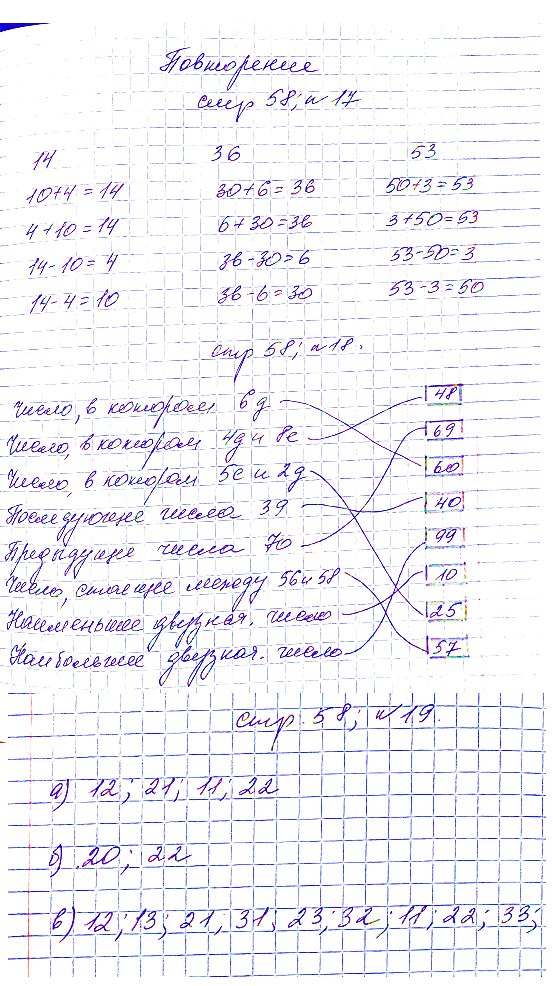 Повторение
стр 58; №17
14 36 53
10+4=14 30+6=36 50+3=53
4+10=14 6+30=36 3+50=53
14-10=4 36-30=6 53-50=3
14-4=10 36-6=30 53-3=50
стр 58; №18.
Число, в котором 6д 48
Число, в котором 4д и 8е 69
Число, в котором 5е и 2д 60
Последующее числа 39 40
Предыдущее числа 70 99
Число, стоящее между 56 и 58 10
Наименьшее двузнач. число 25
Наибольшее двузнач. число 57
стр. 58; №19.
а) 12; 21; 11; 22
б) 20; 22
в) 12; 13; 21; 31; 23; 32; 11; 22; 33;